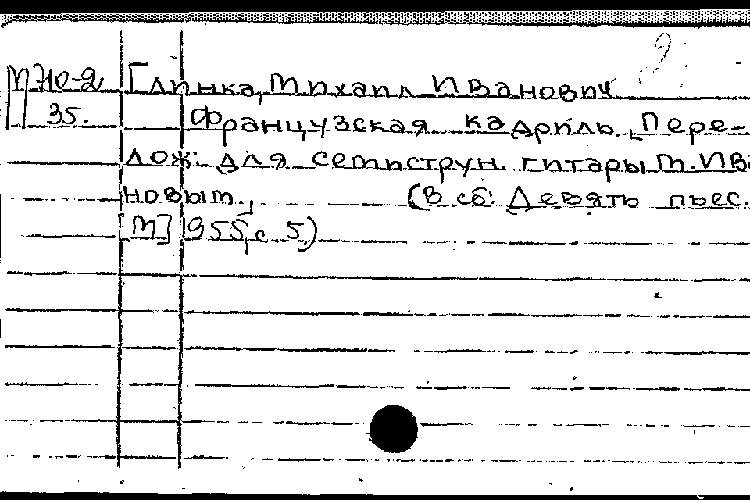 М 710-2 Глинка, Михаил Иванович
35. Французская кадриль. Пере-
лож. для семиструн. гитары М. Ива
новым. (В сб: Девять пьес.
[М] 955, с 5)